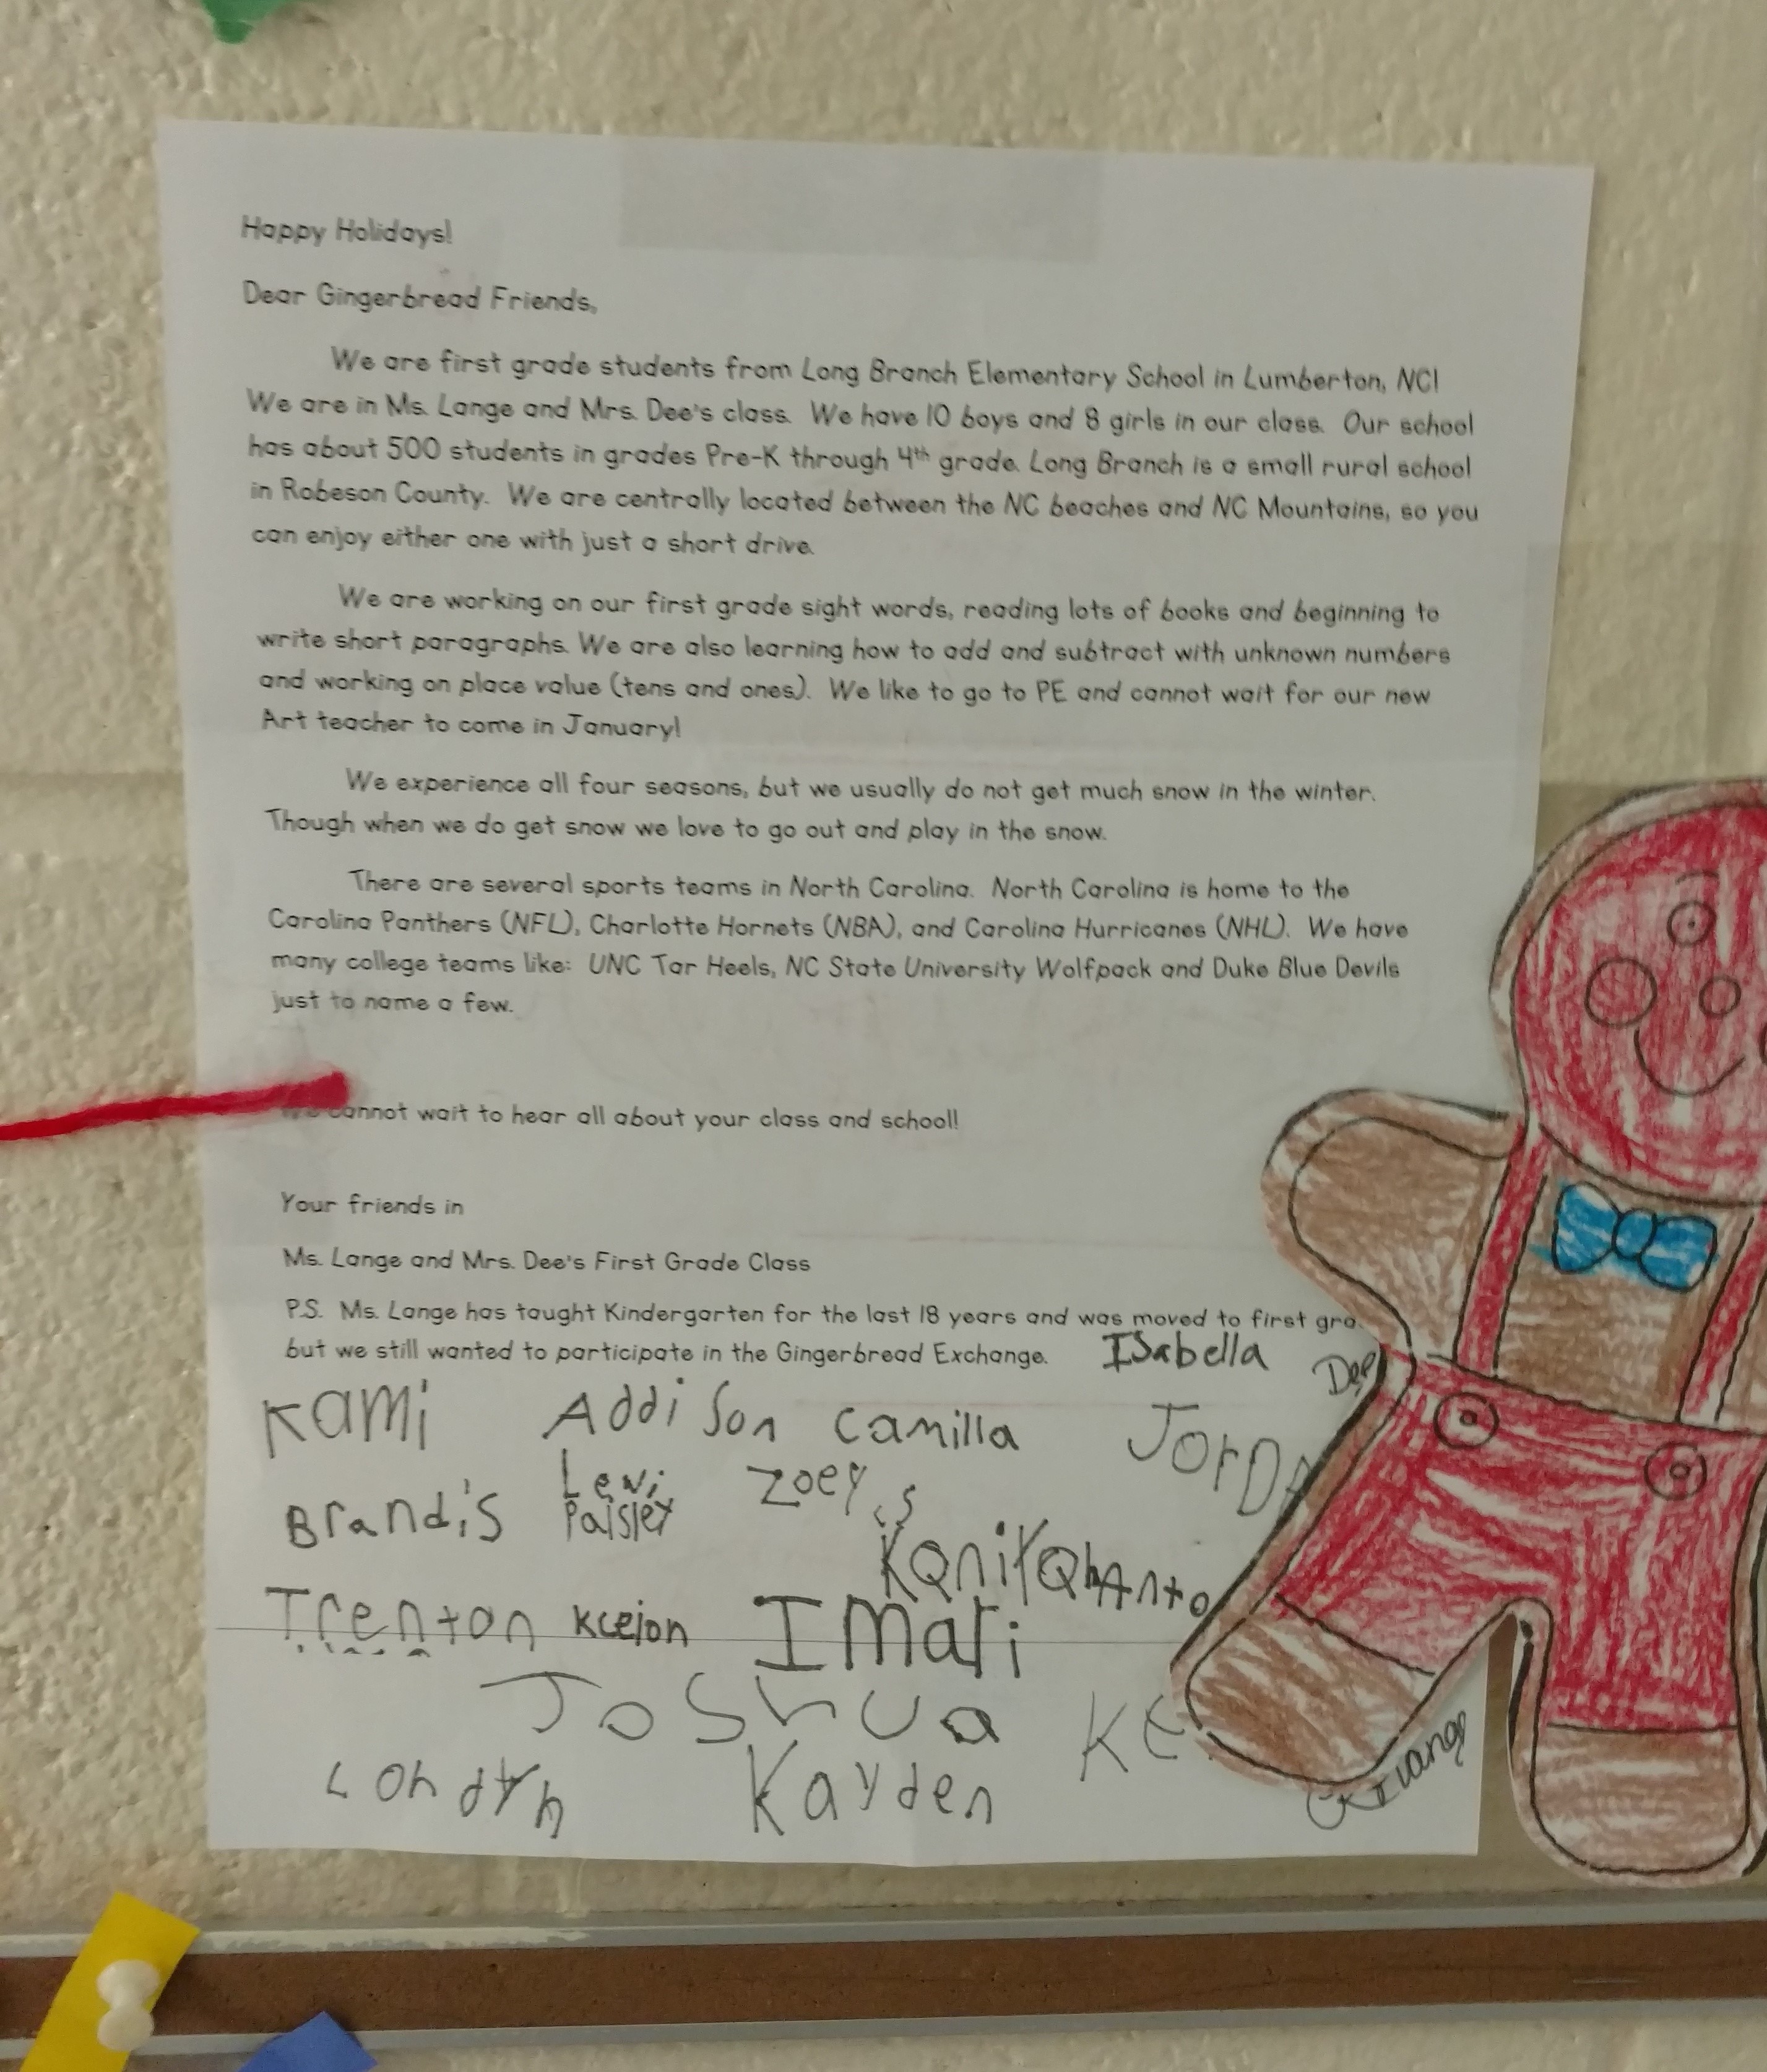 Happy Holidays!
Dear Gingerbread Friends,
We are first grade students from Long Branch Elementary School in Lumberton, NC!
We are in Ms. Lange and Mrs. Dee's class. We have 10 boys and 8 girls in our class. Our school
has about 500 students in grades Pre-K through 4th grade. Long Branch is a small rural school
in Robeson County. We are centrally located between the NC beaches and NC Mountains, so you
can enjoy either one with just a short drive.
We are working on our first grade sight words, reading lots of books and beginning to
write short paragraphs. We are also learning how to add and subtract with unknown numbers
and working on place value (tens and ones). We like to go to PE and cannot wait for our new
Art teacher to come in January!
We experience all four seasons, but we usually do not get much snow in the winter.
Though when we do get snow we love to go out and play in the snow.
There are several sports teams in North Carolina. North Carolina is home to the
Carolina Panthers (NFL), Charlotte Hornets (NBA), and Carolina Hurricanes (NHL). We have
many college teams like: UNC Tar Heels, NC State University Wolfpack and Duke Blue Devils
just to name a few.
We cannot wait to hear all about your class and school!
Your friends in
Ms. Lange and Mrs. Dee's First Grade Class
P.S. Ms. Lange has taught Kindergarten for the last 18 years and was moved to first gra
but we still wanted to participate in the Gingerbread Exchange. Isabella
Dee
Kami Addison Camilla
Levi Zoey
Brandis Paisley
Anto
Trenton Kceion Imari
Joshua
Londyn Kayden